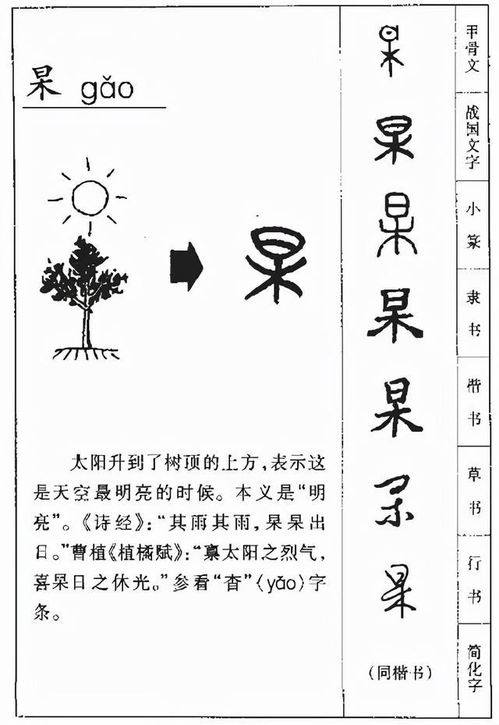 杲 gǎo
杲
太阳升到了树顶的上方,表示这
是天空最明亮的时候。本义是“明
亮”。《诗经》:“其雨其雨,杲杲出
日。”曹植《植橘赋》:“禀太阳之烈气,
喜杲日之休光。”参看“杳”〈yǎo〉字
条。
杲 甲骨文
杲 战国文字
杲 小篆
杲 隶书
杲 楷书
杲 草书
杲 行书
(同楷书) 简化字